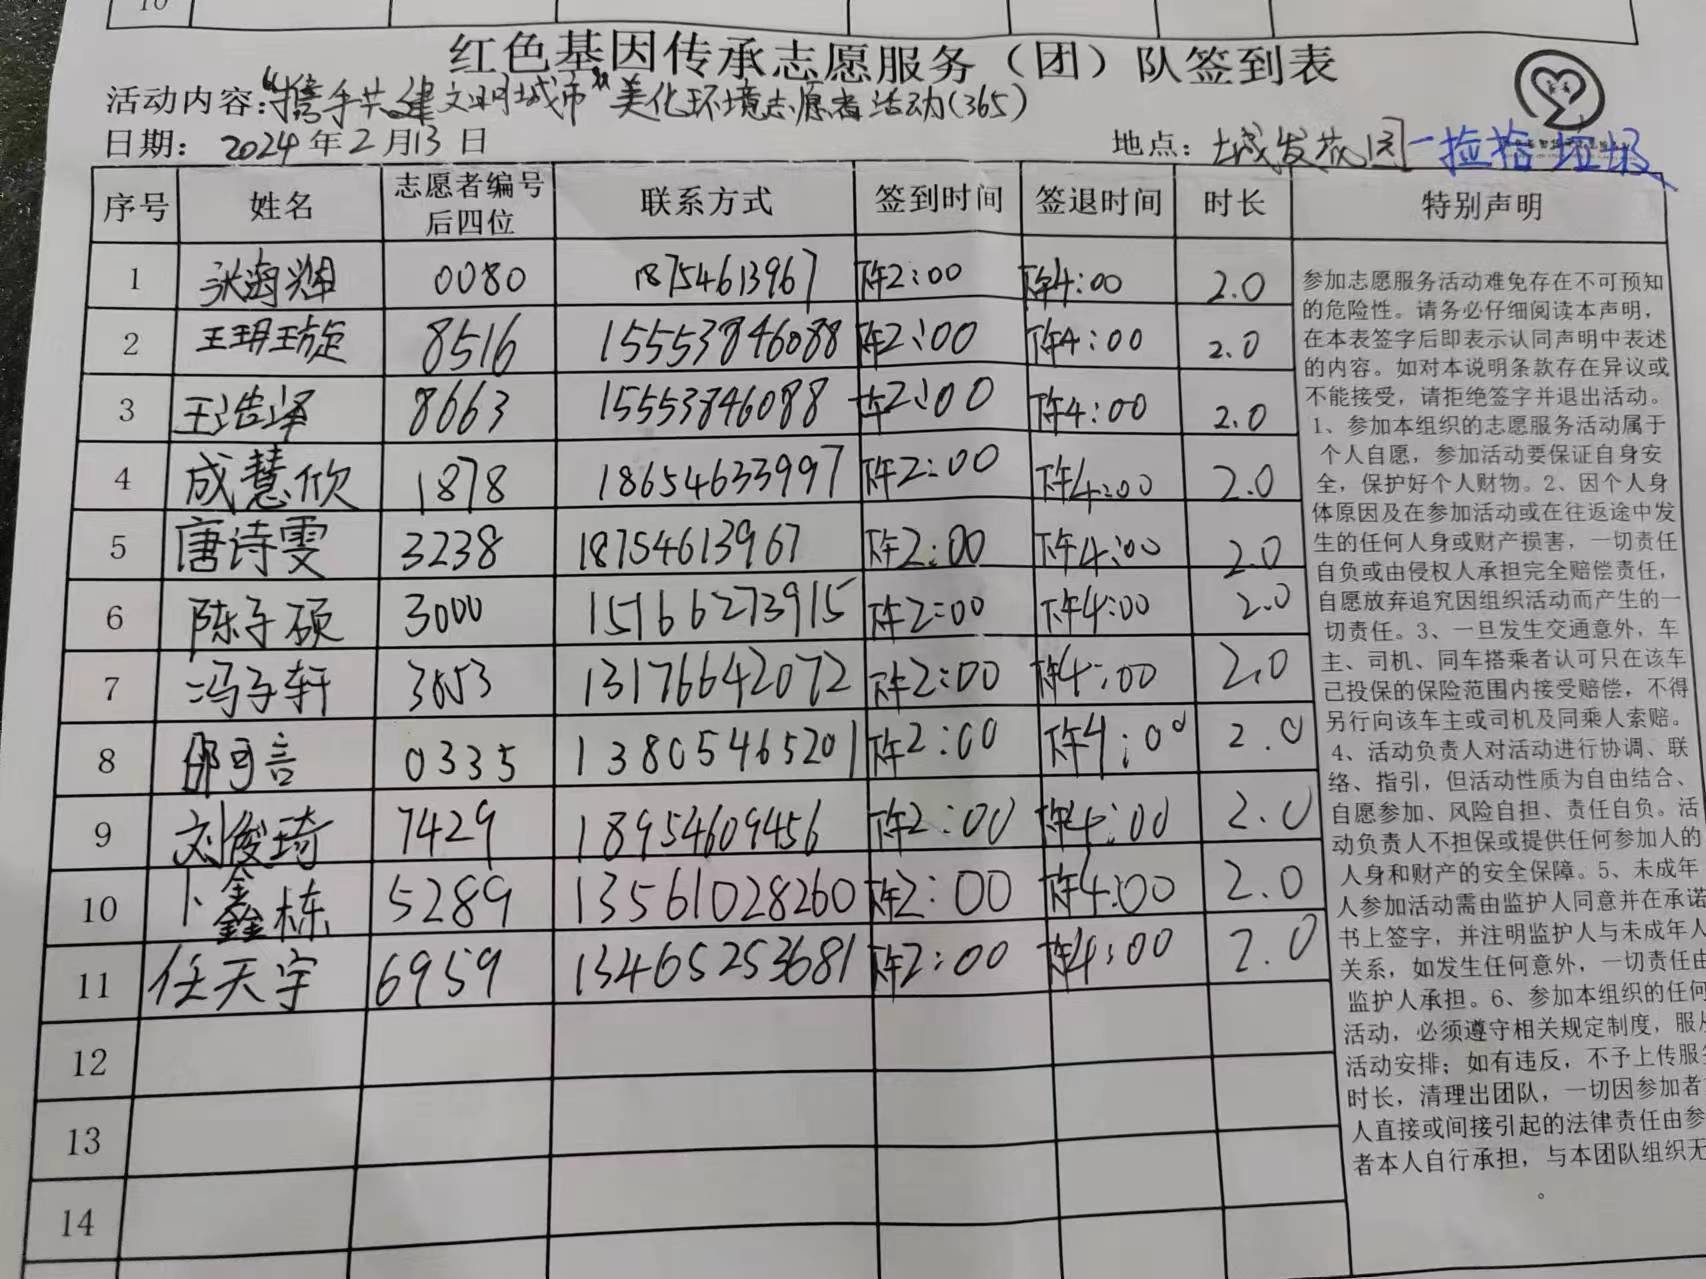 10
红色基因传承志愿服务（团）队签到表
活动内容：“携手共建文明城市”美化环境志愿者活动（365）
日期： 2024年2月13日 地点：城发花园-捡拾垃圾
序号 姓名 志愿者编号后四位 联系方式 签到时间 签退时间 时长 特别声明
1 张海翔 0080 18754613967 下午2:00 下午4:00 2.0
2 王玥璇 8516 15553846088 下午2:00 下午4:00 2.0
3 王浩泽 8663 15553846088 下午2:00 下午4:00 2.0
4 成慧欣 1878 18654633997 下午2:00 下午4:00 2.0
5 唐诗雯 3238 18754613967 下午2:00 下午4:00 2.0
6 陈子硕 3000 15166273915 下午2:00 下午4:00 2.0
7 冯子轩 3053 13176642072 下午2:00 下午4:00 2.0
8 邵可言 0335 13805465201 下午2:00 下午4:00 2.0
9 刘俊琦 7429 18954609456 下午2:00 下午4:00 2.0
10 卜鑫栋 5289 13561028260 下午2:00 下午4:00 2.0
11 任天宇 6959 13465253681 下午2:00 下午4:00 2.0
12
13
14
参加志愿服务活动难免存在不可预知
的危险性。请务必仔细阅读本声明，
在本表签字后即表示认同声明中表述
的内容。如对本说明条款存在异议或
不能接受，请拒绝签字并退出活动。
1、参加本组织的志愿服务活动属于
个人自愿，参加活动要保证自身安
全，保护好个人财物。2、因个人身
体原因及在参加活动或在往返途中发
生的任何人身或财产损害，一切责任
自负或由侵权人承担完全赔偿责任，
自愿放弃追究因组织活动而产生的一
切责任。3、一旦发生交通意外，车
主、司机、同车搭乘者认可只在该车
已投保的保险范围内接受赔偿，不得
另行向该车主或司机及同乘人索赔。
4、活动负责人对活动进行协调、联
络、指引，但活动性质为自由结合、
自愿参加、风险自担、责任自负。活
动负责人不担保或提供任何参加人的
人身和财产的安全保障。5、未成年
人参加活动需由监护人同意并在承诺
书上签字，并注明监护人与未成年人
关系，如发生任何意外，一切责任由
监护人承担。6、参加本组织的任何
活动，必须遵守相关规定制度，服从
活动安排；如有违反，不予上传服务
时长，清理出团队，一切因参加者
人直接或间接引起的法律责任由参
者本人自行承担，与本团队组织无
。